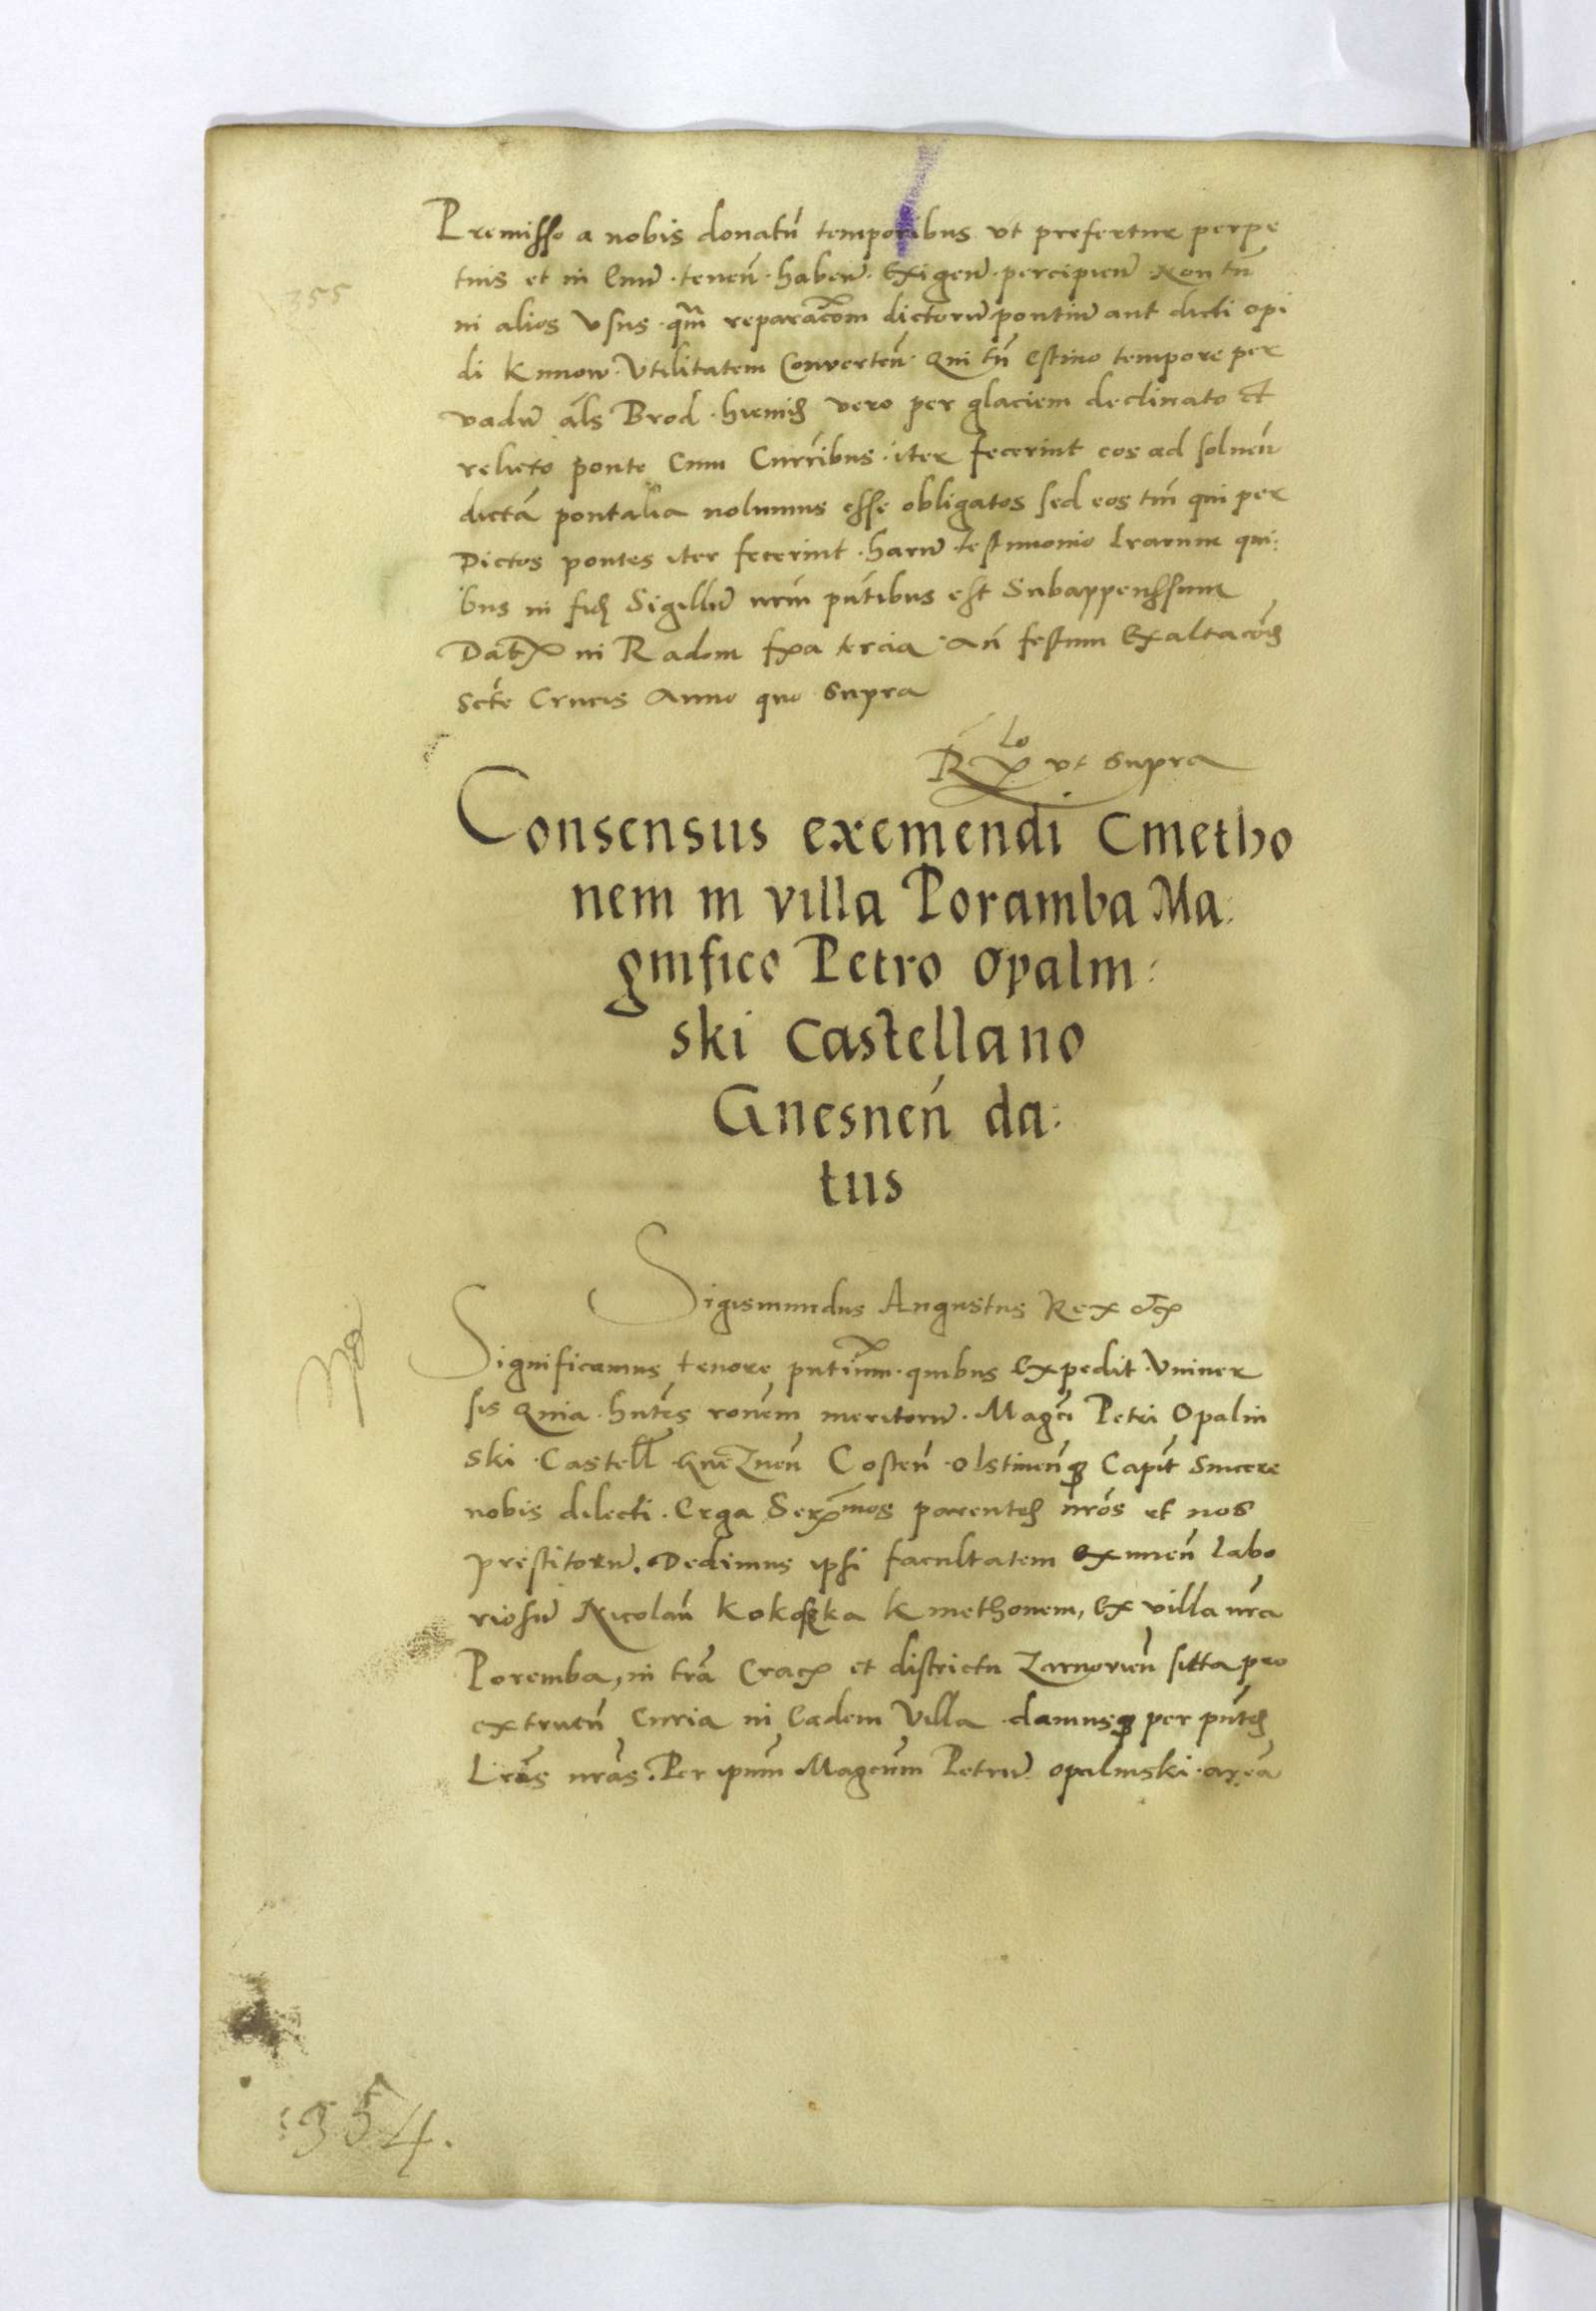 Premisso a nobis donatū temporibus vt prefertur perpe
tuis et in euū · tenen̄ · haben̄ · Exigen̄ · percipien̄ · Non tn̄
in alios vsus · qm̄ reparacōm dictorū pontiū aut dicti opi
355
di Knnow · Vtilitatem Conuerten̄ · Qui tn̄ estiuo tempore per
vadū al̄s Brod · hiemis vero per glaciem declinato et
relicto ponte Cum Curribus · iter fecerint eos ad soluen̄
dictā pontalia nolumus esse obligatos sed eos tm̄ qui per
Dictos pontes iter fecerint · harū · testimonio lrarum qui:
bus in fid̄ Sigillū nrm̄ pn̄tibus est Subappenssum
Dat̄ in Radom fr̄a tercia · An̄ festum Exaltacōis
Scte Crucis Anno quo supra
Rlo vt supra
Consensus exemendi Cmetho
nem in villa Poramba Ma:
gnifico Petro Opalin:
ski Castellano
Gnesnen̄ da:
tus
Sigismundus Augustus Rex etc̄
Significamus tenore pn̄tium · quibus Expedit · Vniuer
sis Quia · hn̄tes ronem meritorū · Magci Petri Opalin
ski · Castell̄ · Gneznen̄ Costen̄ · Olstinen̄q̄ Capit̄ Sincere
nobis dilecti · Erga Sermos parentes nr̄os et nos
prestitorū . Dedimus ipsi facultatem eximen̄ labo
riosū Nicolaū Kokoszka Kmethonem, Ex villa nr̄a
Poremba, in tr̄a Crac̄ et districtu Zarnovien̄ sitta pro
extruen̄ Curia in Eadem Villa · damusq̄ per pn̄tes
Lr̄as nr̄as . Per ipm̄ Magcum Petrū opalinski · areā
354.